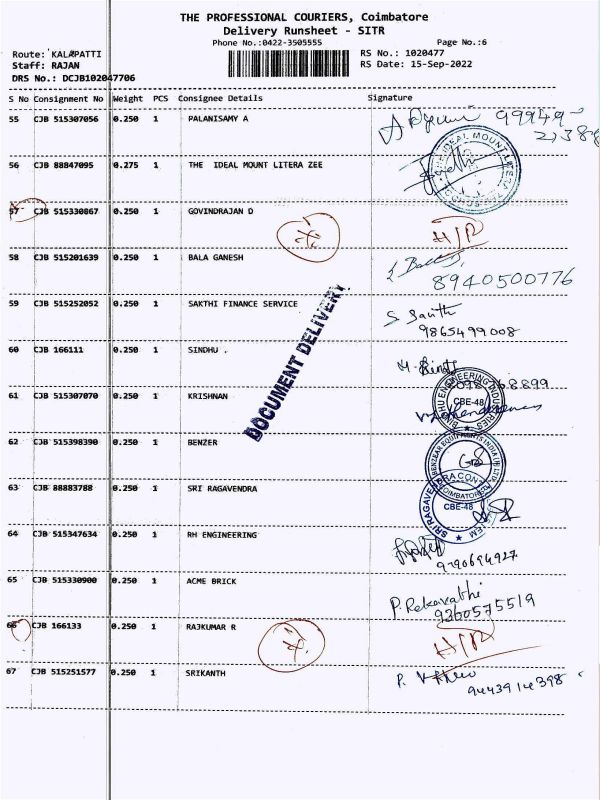 THE PROFESSIONAL COURIERS, Coimbatore
Delivery Runsheet - SITR
Phone No.:0422-3505555 Page No.:6
Route: KALAPATTI RS No.: 1020477
Staff: RAJAN RS Date: 15-Sep-2022
DRS No.: DCJB102047706
S No Consignment No Weight PCS Consignee Details Signature
55 CJB 515307056 0.250 1 PALANISAMY A
99949-
56 CJB 88847095 0.275 1 THE IDEAL MOUNT LITERA ZEE
57 CJB 515330867 0.250 1 GOVINDRAJAN D
58 CJB 515201639 0.250 1 BALA GANESH
8940500776
59 CJB 515252052 0.250 1 SAKTHI FINANCE SERVICE
9865499008
60 CJB 166111 0.250 1 SINDHU .
DOCUMENT DELIVERY
61 CJB 515307070 0.250 1 KRISHNAN
CBE-48
62 CJB 515398390 0.250 1 BENZER
63 CJB 88883788 0.250 1 SRI RAGAVENDRA
CBE-48
64 CJB 515347634 0.250 1 RH ENGINEERING
9790694927
65 CJB 515330900 0.250 1 ACME BRICK
9360575519
66 CJB 166133 0.250 1 RAJKUMAR R
67 CJB 515251577 0.250 1 SRIKANTH
9443914398